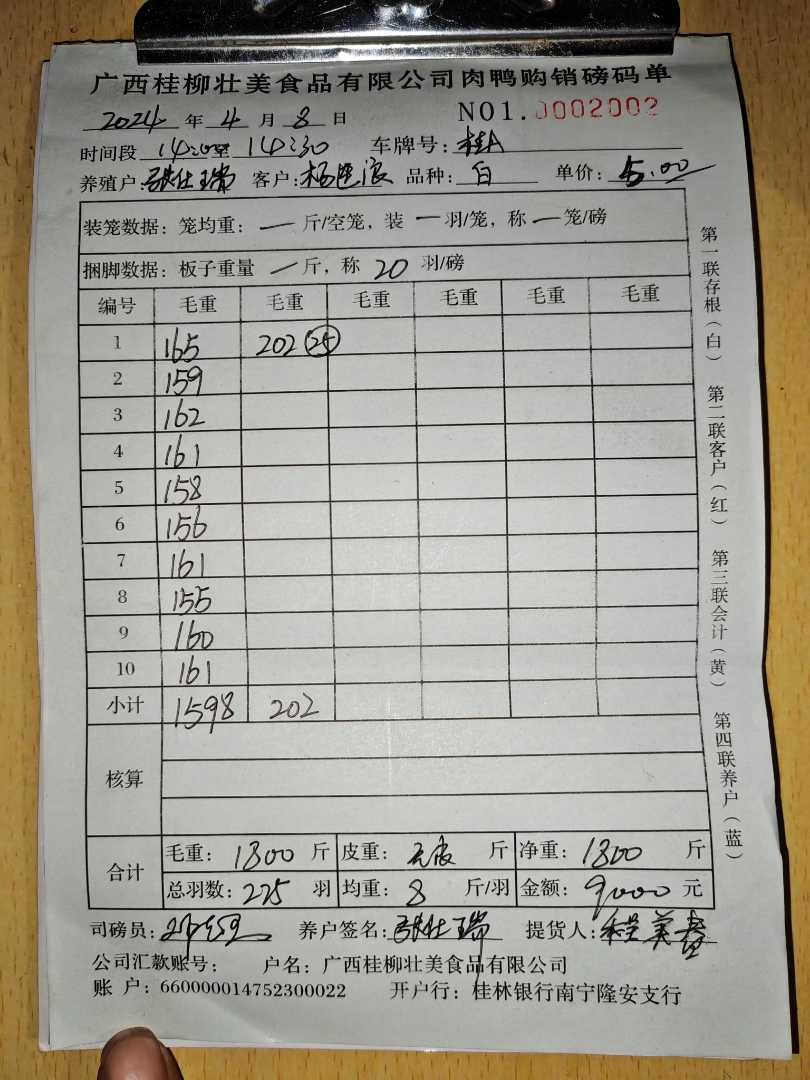 广西桂柳壮美食品有限公司肉鸭购销磅码单
2024 年 4 月 8 日 NO1. 0002002
时间段 14:00至 14:30 车牌号: 桂A
养殖户: 张仕瑞 客户: 杨 浪 品种: 白 单价: 5.00
装笼数据: 笼均重: 一 斤/空笼, 装 一 羽/笼, 称 一 笼/磅
捆脚数据: 板子重量 一 斤, 称 20 羽/磅
编号 毛重 毛重 毛重 毛重 毛重 毛重
1 165 202 (25)
2 159
3 162
4 161
5 158
6 156
7 161
8 155
9 160
10 161
小计 1598 202
核算
合计 毛重: 1800 斤 皮重: 斤 净重: 1800 斤
总羽数: 225 羽 均重: 8 斤/羽 金额: 9000 元
司磅员: 养户签名: 张仕瑞 提货人: 美
公司汇款账号: 户名: 广西桂柳壮美食品有限公司
账 户: 660000014752300022 开户行: 桂林银行南宁隆安支行
第一联存根(白) 第二联客户(红) 第三联会计(黄) 第四联养户(蓝)